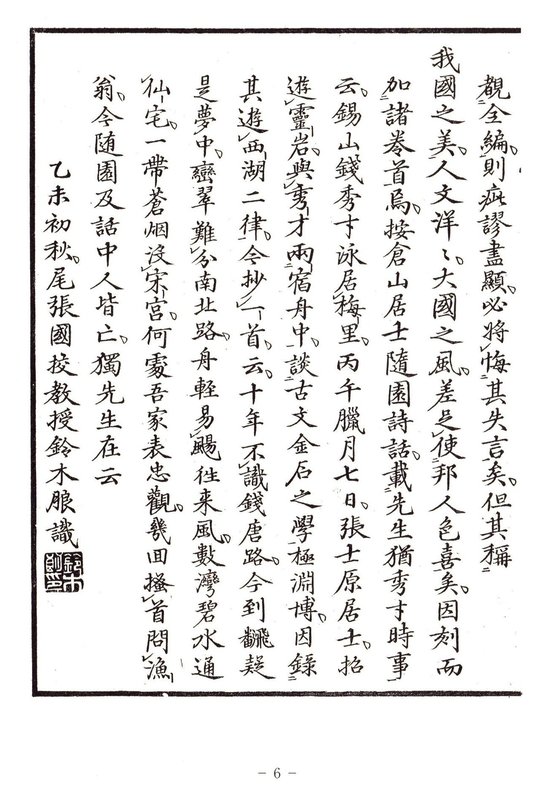 覩全編則疵謬盡顯必將悔其失言矣但其稱
我國之美人文洋〻大國之風差足使邦人色喜矣因刻而
加諸卷首焉按倉山居士隨園詩話載先生猶秀才時事
云錫山錢秀才泳居梅里丙午臘月七日張士原居士招
遊靈岩與秀才兩宿舟中談古文金石之學極淵博因錄
其遊西湖二律今抄一首云十年不識錢唐路今到翻疑
是夢中巒翠難分南北路舟輕易颺往来風數灣碧水通
仙宅一帶蒼烟沒宋宮何處吾家表忠觀幾回搔首問漁
翁今随園及話中人皆亡獨先生在云
乙未初秋尾張國校教授鈴木朖識
- 6 -